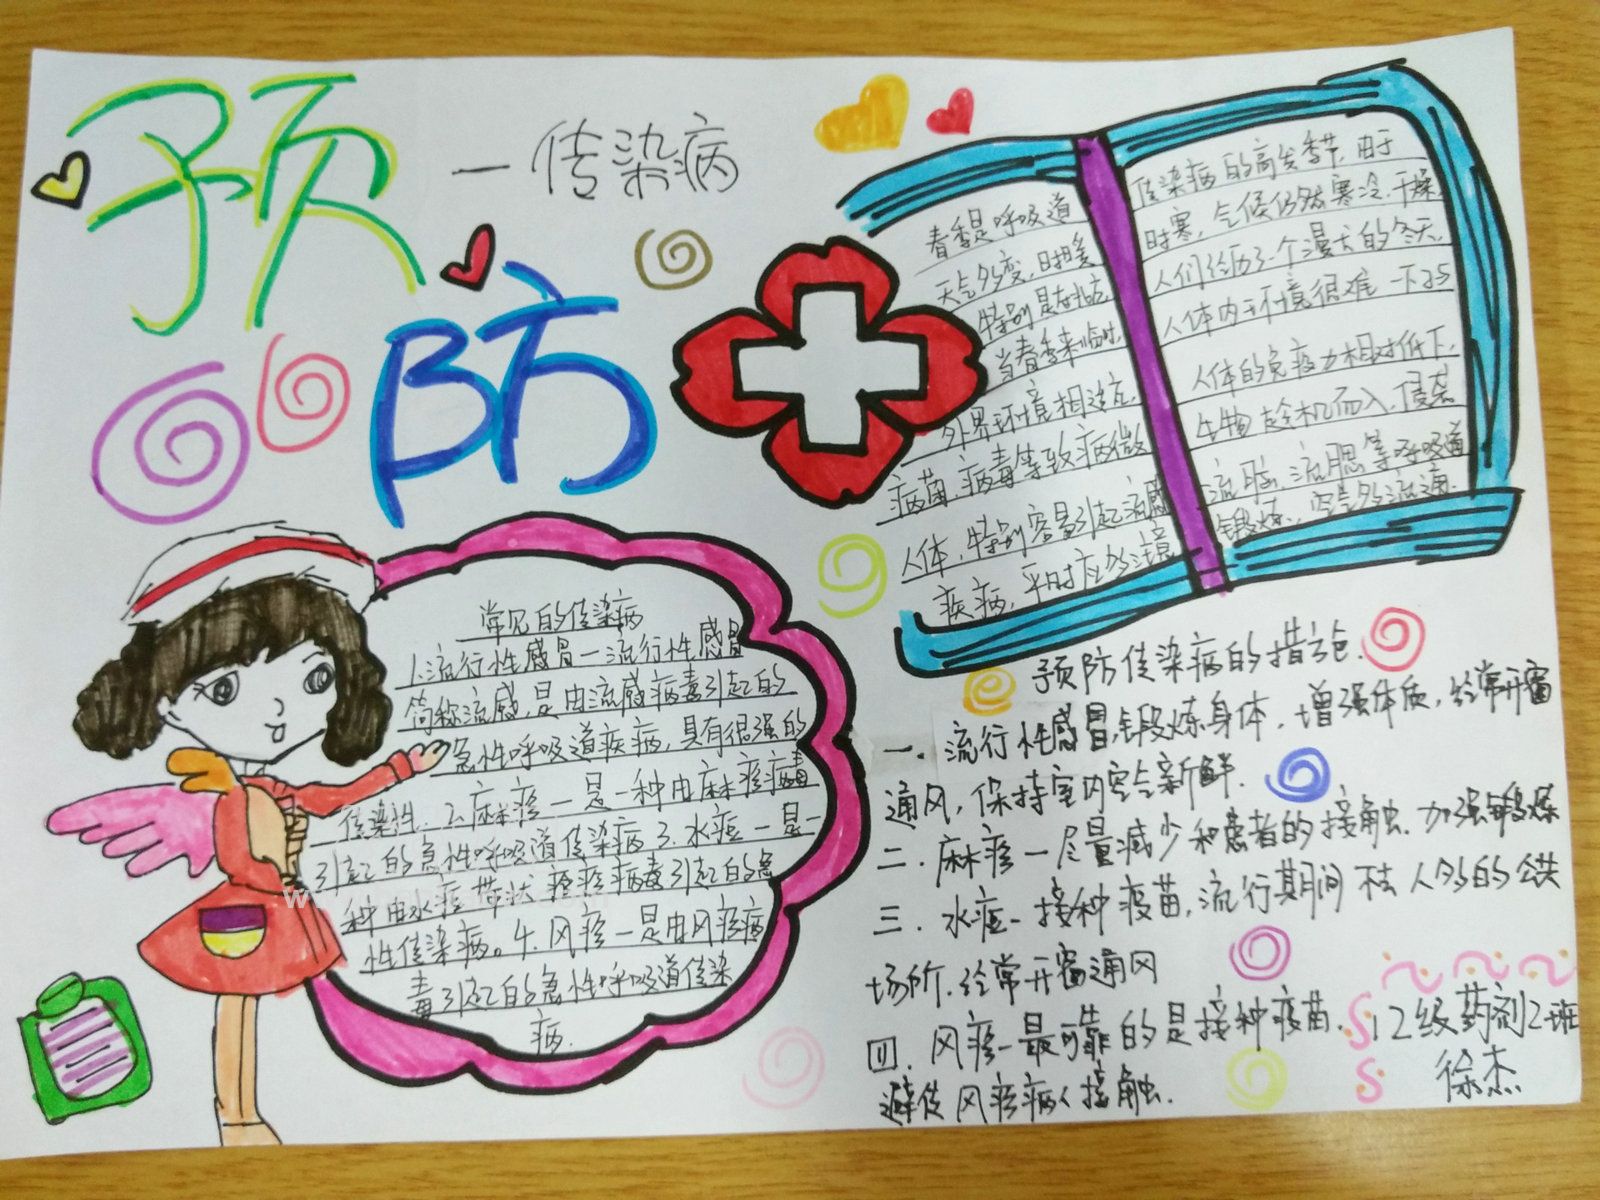 预防
一传染病
春季是呼吸道
天气多变,时暖
特别是在北方,
当春季来临时,
外界环境相适应,
病菌、病毒等致病微
人体,特别容易引起流感
疾病,平时应多注意
传染病的高发季节,由于
时寒,气候仍然寒冷、干燥
人们经历了一个漫长的冬天,
人体内环境很难一下子与
人体的免疫力相对低下,
生物趁机而入,侵袭
流脑、流腮等呼吸道
锻炼,空气多流通.
常见的传染病
1.流行性感冒一流行性感冒
简称流感,是由流感病毒引起的
急性呼吸道疾病,具有很强的
传染性. 2.麻疹一是一种由麻疹病毒
引起的急性呼吸道传染病 3.水痘一是一
种由水痘带状疱疹病毒引起的急
性传染病。4.风疹一是由风疹病
毒引起的急性呼吸道传染
病.
预防传染病的措施.
一.流行性感冒,锻炼身体,增强体质,经常开窗
通风,保持室内空气新鲜.
二.麻疹一尽量减少和患者的接触.加强锻炼
三.水痘一接种疫苗,流行期间不去人多的公共
场所.经常开窗通风
四.风疹一最可靠的是接种疫苗.
避免风疹病人接触.
12级药剂2班
徐杰